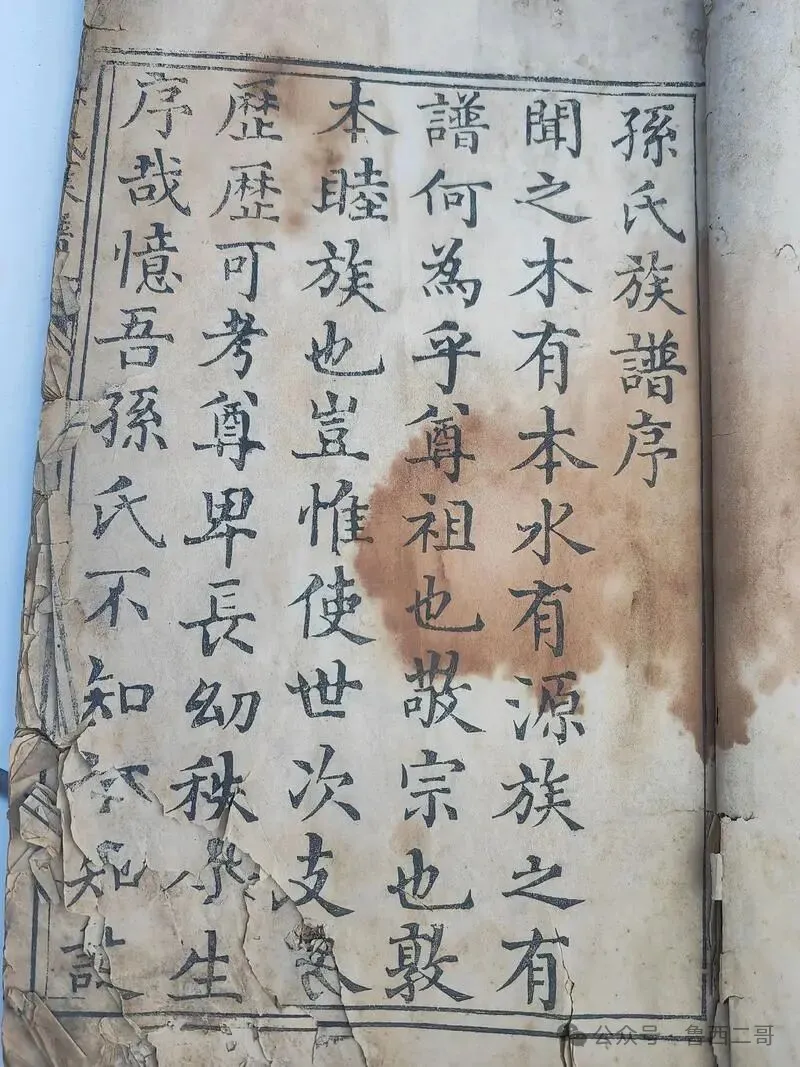 孫氏族譜序
聞之木有本水有源族之有
譜何為乎尊祖也敬宗也敦
本睦族也豈惟使世次支
歷歷可考尊卑長幼秩生
序哉憶吾孫氏不知
公众号 · 鲁西二哥